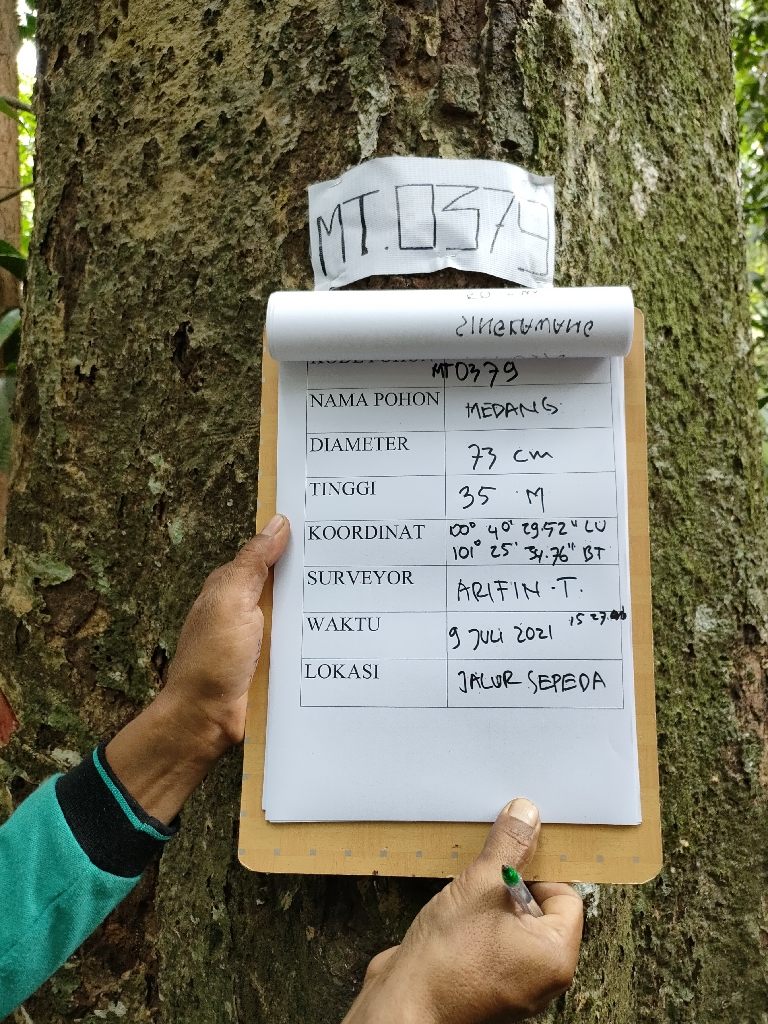 MT.0379
SINGKAWANG
KODE POHON
MT0379
NAMA POHON MEDANG
DIAMETER 73 cm
TINGGI 35 M
KOORDINAT 00° 40' 29.52" LU
101° 25' 34.76" BT
SURVEYOR ARIFIN.T.
WAKTU 9 JULI 2021 15 27
LOKASI JALUR SEPEDA